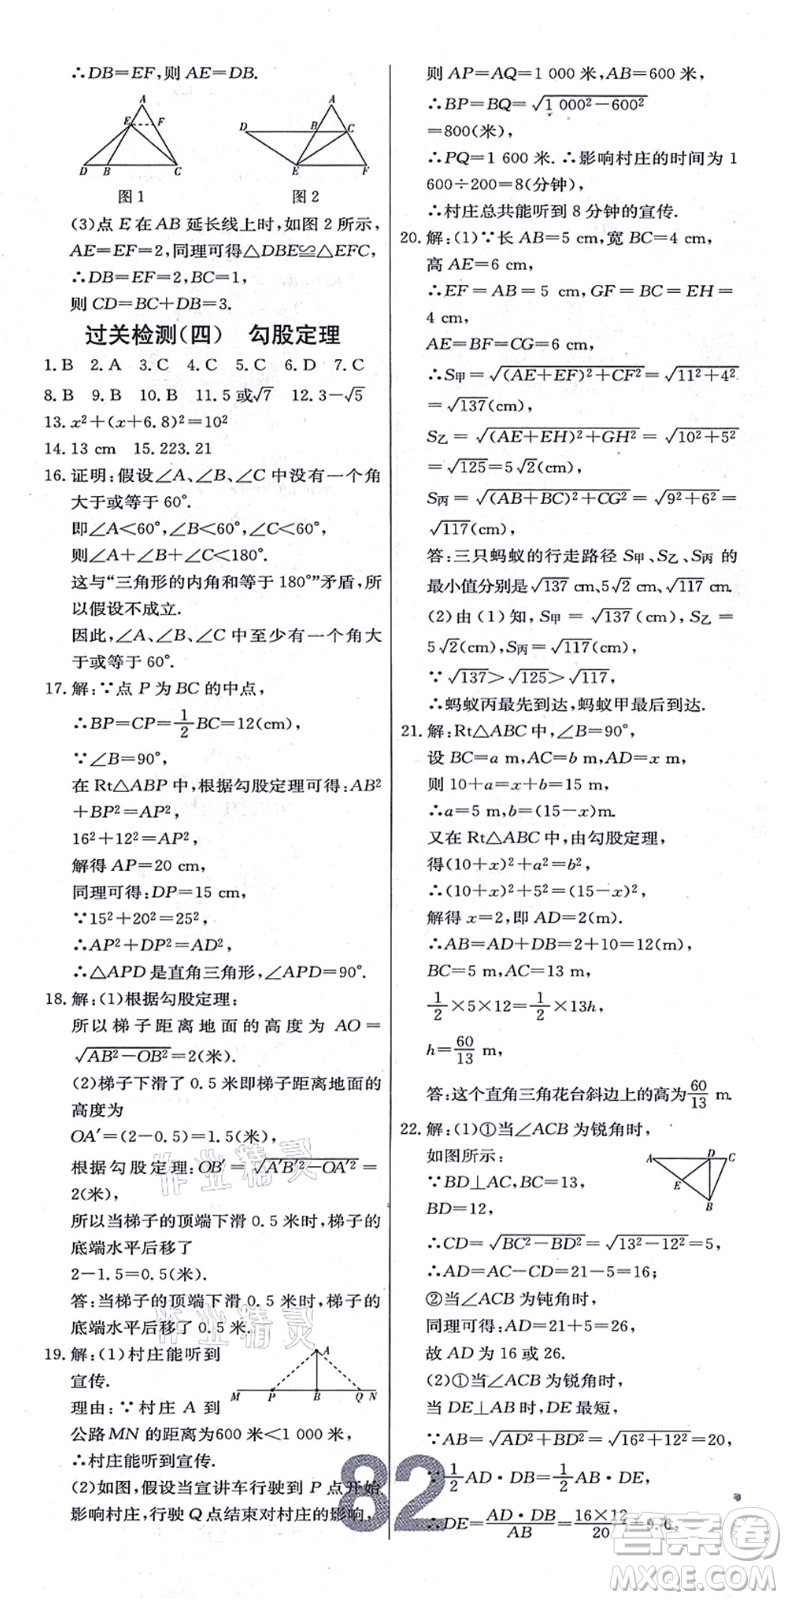 ∴DB=EF,则 AE=DB.
A
E
F
D
B
C
图 1
A
B
C
D
E
F
图 2
(3)点 E 在 AB 延长线上时,如图 2 所示,
AE=EF=2,同理可得△DBE≌△EFC,
∴DB=EF=2,BC=1,
则 CD=BC+DB=3.
过关检测(四) 勾股定理
1.B 2.A 3.C 4.C 5.C 6.D 7.C
8.B 9.B 10.B 11.5 或√7 12.3-√5
13.x²+(x+6.8)²=10²
14.13 cm 15.223.21
16.证明:假设∠A、∠B、∠C 中没有一个角
大于或等于 60°.
即∠A<60°,∠B<60°,∠C<60°,
则∠A+∠B+∠C<180°.
这与“三角形的内角和等于 180°”矛盾,所
以假设不成立.
因此,∠A、∠B、∠C 中至少有一个角大
于或等于 60°.
17.解:∵点 P 为 BC 的中点,
∴BP=CP=1/2BC=12(cm),
∵∠B=90°,
在 Rt△ABP 中,根据勾股定理可得:AB²
+BP²=AP²,
16²+12²=AP²,
解得 AP=20 cm,
同理可得:DP=15 cm,
∵15²+20²=25²,
∴AP²+DP²=AD²,
∴△APD 是直角三角形,∠APD=90°.
18.解:(1)根据勾股定理:
所以梯子距离地面的高度为 AO=
√(AB²-OB²)=2(米).
(2)梯子下滑了 0.5 米即梯子距离地面的
高度为
OA′=(2-0.5)=1.5(米),
根据勾股定理:OB′=√(A′B′²-OA′²)=
2(米),
所以当梯子的顶端下滑 0.5 米时,梯子的
底端水平后移了
2-1.5=0.5(米),
答:当梯子的顶端下滑 0.5 米时,梯子的
底端水平后移了 0.5 米.
19.解:(1)村庄能听到
宣传.
A
M P B Q N
理由:∵村庄 A 到
公路 MN 的距离为600 米<1 000 米,
∴村庄能听到宣传.
(2)如图,假设当宣讲车行驶到 P 点开始
影响村庄,行驶 Q 点结束对村庄的影响,
则 AP=AQ=1 000 米,AB=600 米,
∴BP=BQ=√(1 000²-600²)
=800(米),
∴PQ=1 600 米.∴影响村庄的时间为 1
600÷200=8(分钟),
∴村庄总共能听到 8 分钟的宣传.
20.解:(1)∵长 AB=5 cm,宽 BC=4 cm,
高 AE=6 cm,
∴EF = AB = 5 cm,GF = BC = EH =
4 cm,
AE=BF=CG=6 cm,
∴S甲=√((AE+EF)²+CF²)=√(11²+4²)
=√137(cm),
S乙=√((AE+EH)²+GH²)=√(10²+5²)
=√125=5√2(cm),
S丙=√((AB+BC)²+CG²)=√(9²+6²)=
√117(cm),
答:三只蚂蚁的行走路径 S甲、S乙、S丙的
最小值分别是√137 cm、5√2 cm、√117 cm.
(2)由(1)知,S甲=√137(cm),S乙=
5√2(cm),S丙=√117(cm),
∵√137>√125>√117,
∴蚂蚁丙最先到达,蚂蚁甲最后到达.
21.解:Rt△ABC 中,∠B=90°,
设 BC=a m,AC=b m,AD=x m,
则 10+a=x+b=15 m,
∴a=5 m,b=(15-x)m.
又在 Rt△ABC 中,由勾股定理,
得(10+x)²+a²=b²,
∴(10+x)²+5²=(15-x)²,
解得 x=2,即 AD=2(m).
∴AB=AD+DB=2+10=12(m),
BC=5 m,
1/2×5×12=1/2×13h,
h=60/13 m,
答:这个直角三角花台斜边上的高为60/13 m.
22.解:(1)①当∠ACB 为锐角时,
如图所示:
A D C
E
B
∵BD⊥AC,BC=13,
BD=12,
∴CD=√(BC²-BD²)=√(13²-12²)=5,
∴AD=AC-CD=21-5=16;
②当∠ACB 为钝角时,
同理可得:AD=21+5=26,
故 AD 为 16 或 26.
(2)①当∠ACB 为锐角时,
当 DE⊥AB 时,DE 最短,
∵AB=√(AD²+BD²)=√(16²+12²)=20,
∵1/2AD·DB=1/2AB·DE,
∴DE=AD·DB/AB=16×12/20=9.6,
82
作业精灵
作业精灵
答案圈
MXQE.COM